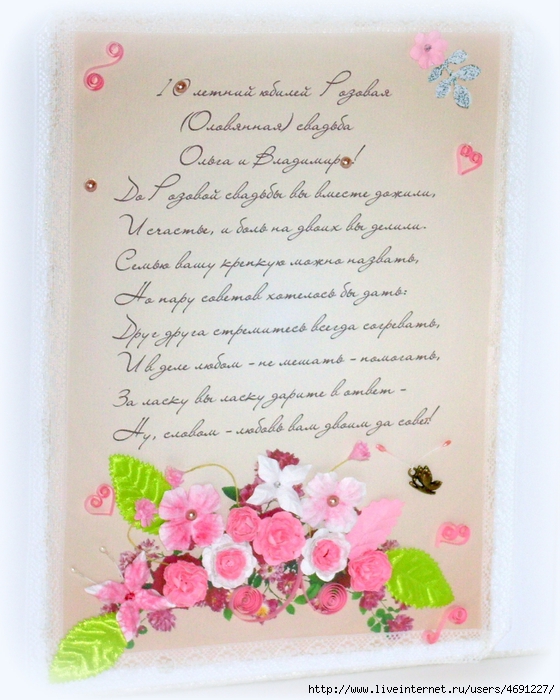 10 летний юбилей Розовая
(Оловянная) свадьба
Ольга и Владимир!
До Розовой свадьбы вы вместе дожили,
И счастье, и боль на двоих вы делили.
Семью вашу крепкую можно назвать,
Но пару советов хотелось бы дать:
Друг друга стремитесь всегда согревать,
И в деле любом - не мешать - помогать,
За ласку вы ласку дарите в ответ -
Ну, словом - любовь вам двоим да совет!
http://www.liveinternet.ru/users/4691227/